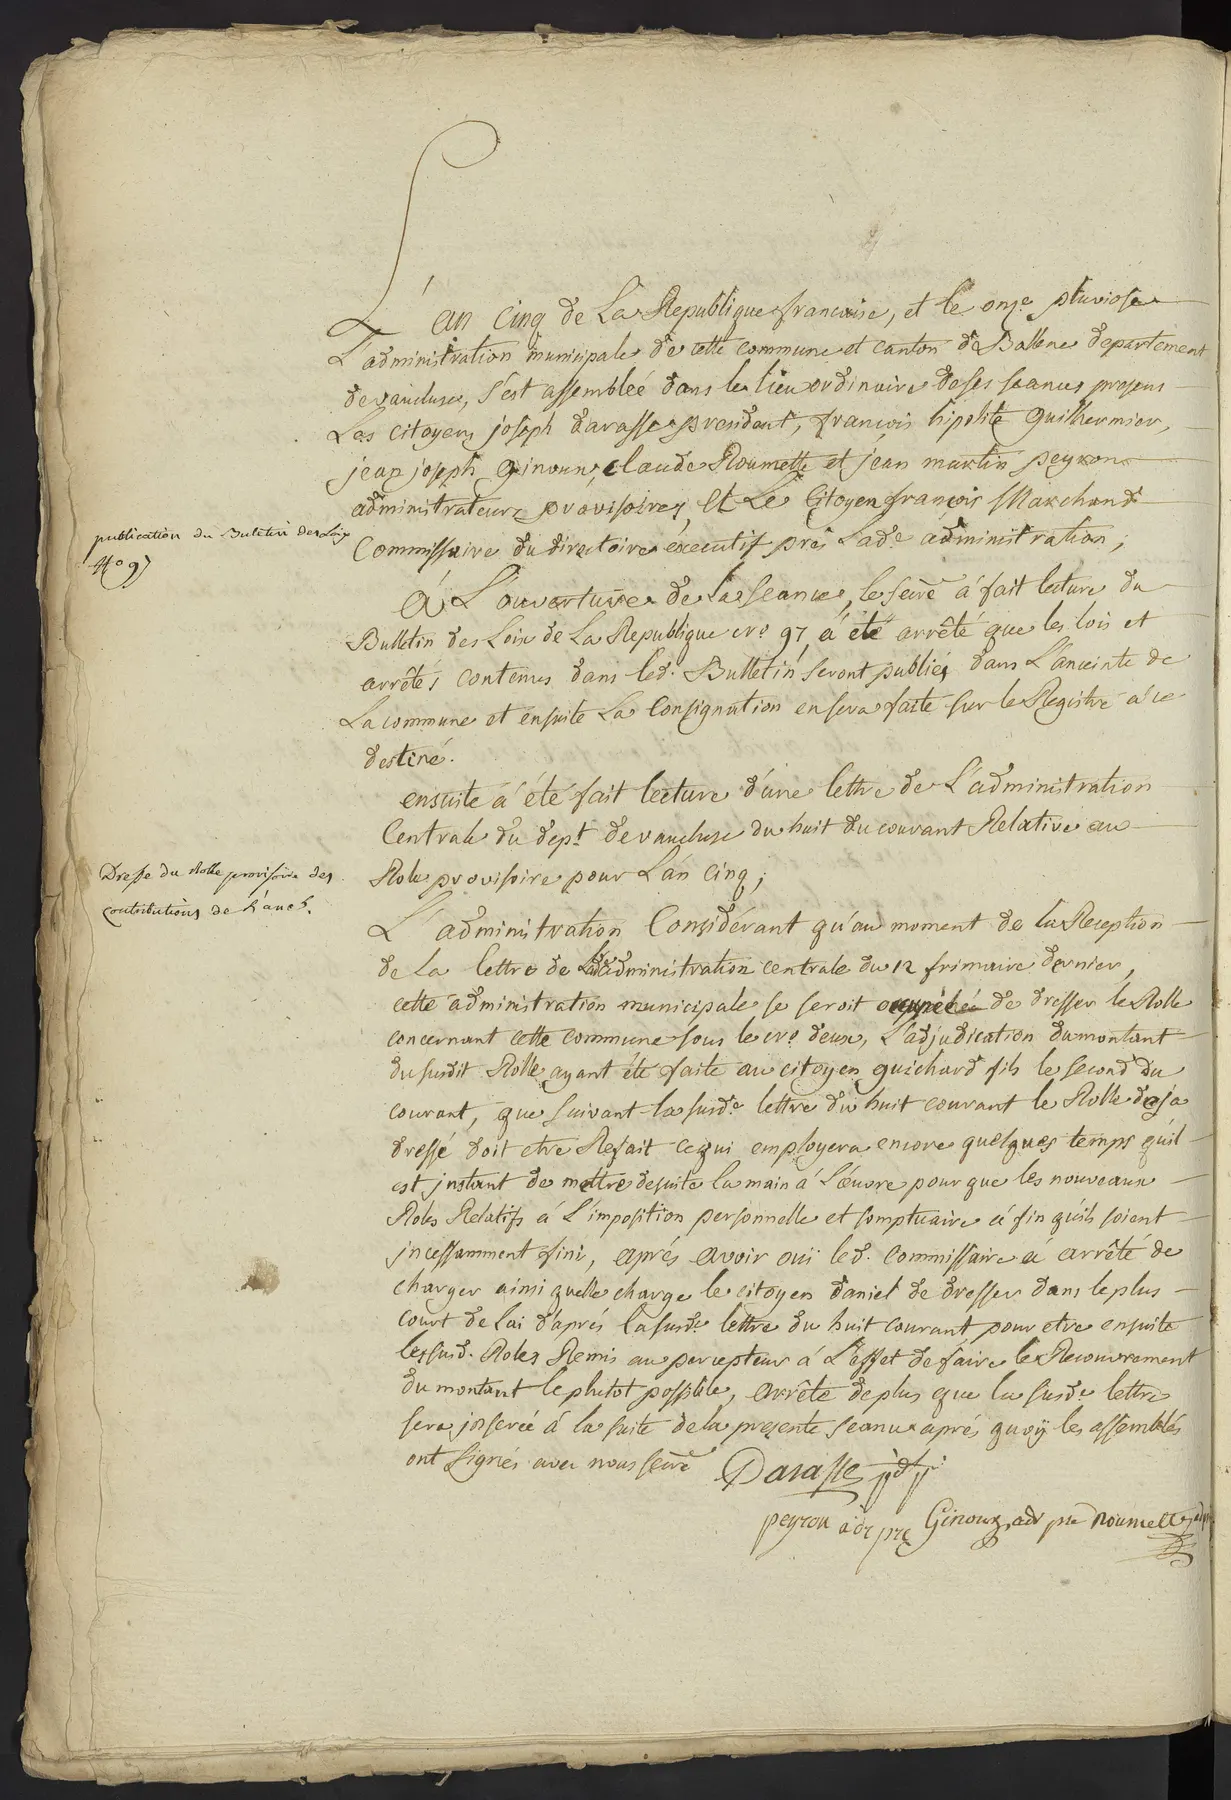 L'an cinq de La Republique francaise, et le onze pluviose
L'administration municipale de cette commune et canton de Bollene departement
de vaucluse, s'est assembleé dans le lieu ordinaire de ses seances presens
Les citoyens joseph darasse president, françois hipolite guilhermier,
jean joseph ginoux, claude Roumette et jean martin peyron
administrateurs provisoires, et Le Citoyen françois Marchand
publication du Buletin des Loix
N° 97
Commissaire du directoire executif près Lade administration;
A L'ouverture de la seance, le secre á fait lecture du
Bulletin des Loix de La Republique no 97, á été arrêté que les lois et
arrêtés contenus dans led. Bulletin seront publiés dans L'anceinte de
La commune et ensuite La Consignation en sera faite sur le Registre a ce
destiné.
ensuite á été fait lecture d'une lettre de L'administration
Centrale du dept de vaucluse du huit du courant Relative au
Role provisoire pour L'an Cinq;
Dresse du Rolle provisoire des
contributions de L'an 5.
L'administration Considérant qu'au moment de la Reception
de La lettre de L'administration centrale du 12 frimaire dernier,
cette administration municipale se seroit occupée de dresser le Rolle
concernant cette commune sous le no deux, L'adjudication du montant
du susdit Rolle ayant été faite au citoyen guichard fils le second du
courant, que suivant la susde lettre du huit courant le Rolle deja
dressé doit etre Refait ce qui employera encore quelques temps qu'il
est jnstant de mettre de suite la main á L'œuvre pour que les nouveaux
Roles Relatifs á L'imposition personnelle et somptuaire á fin qu'ils soient
jncessamment fini, aprés avoir oui led. commissaire á arrêté de
charger ainsi quelle charge le citoyen daniel de dresser dans le plus
court delai d'aprés la susde lettre du huit courant pour etre ensuite
les susd. Roles Remis au percepteur á L'effet de faire le Recouvrement
du montant le plutot possible, arrête de plus que la susde lettre
sera jnsereé á la suite de la presente seance aprés quoy les assemblés
ont signés avec nous secre Darasse pdt
peyron adr pre Ginoux adr pre Roumette adr